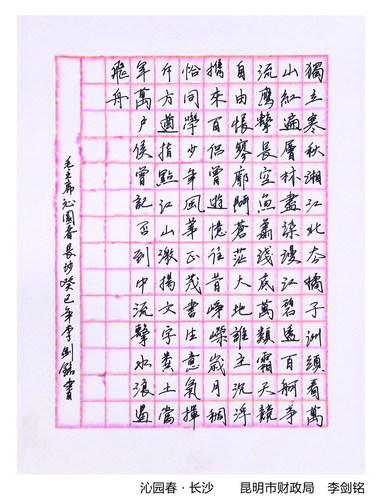 獨立寒秋湘江北去橘子洲頭看萬
山紅遍層林盡染漫江碧透百舸爭
流鷹擊長空魚翔淺底萬類霜天競
自由悵寥廓問蒼茫大地誰主沉浮
攜來百侶曾遊憶往昔崢嶸歲月稠
恰同學少年風華正茂書生意氣揮
斥方遒指點江山激揚文字糞土當
年萬戶侯曾記否到中流擊水浪遏
飛舟
毛主席沁園春長沙癸巳年李劍銘書
沁园春·长沙 昆明市财政局 李剑铭